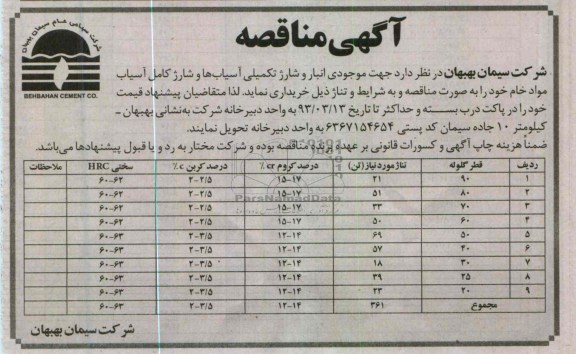 آگهی مناقصه
شرکت سهامی عام سیمان بهبهان
BEHBAHAN CEMENT CO.
شرکت سیمان بهبهان در نظر دارد جهت موجودی انبار و شارژ تکمیلی آسیاب‌ها و شارژ کامل آسیاب
مواد خام خود را به صورت مناقصه و به شرایط و تناژ ذیل خریداری نماید. لذا متقاضیان پیشنهاد قیمت
خود را در پاکت درب بسته و حداکثر تا تاریخ ۹۳/۰۳/۱۳ به واحد دبیرخانه شرکت به‌نشانی بهبهان -
کیلومتر ۱۰ جاده سیمان کد پستی ۶۳۶۷۱۵۴۶۵۴ به واحد دبیرخانه تحویل نمایند.
ضمناً هزینه چاپ آگهی و کسورات قانونی بر عهده برنده مناقصه بوده و شرکت مختار به رد و یا قبول پیشنهادها می‌باشد.
ردیف قطر گلوله تناژ مورد نیاز (تن) درصد کروم cr٪ درصد کربن c٪ سختی HRC ملاحظات
۱ ۹۰ ۲۱ ۱۵-۱۷ ۲-۲/۵ ۶۰-۶۲
۲ ۸۰ ۵۱ ۱۵-۱۷ ۲-۲/۵ ۶۰-۶۲
۳ ۷۰ ۳۳ ۱۵-۱۷ ۲-۲/۵ ۶۰-۶۲
۴ ۶۰ ۵۰ ۱۵-۱۷ ۲-۲/۵ ۶۰-۶۲
۵ ۵۰ ۶۹ ۱۲-۱۴ ۲-۳/۵ ۶۰-۶۳
۶ ۴۰ ۵۷ ۱۲-۱۴ ۲-۳/۵ ۶۰-۶۳
۷ ۳۰ ۱۸ ۱۲-۱۴ ۲-۳/۵ ۶۰-۶۳
۸ ۲۵ ۳۹ ۱۲-۱۴ ۲-۳/۵ ۶۰-۶۳
۹ ۲۰ ۲۳ ۱۲-۱۴ ۲-۳/۵ ۶۰-۶۳
مجموع ۳۶۱ ۱۲-۱۴ ۲-۳/۵ ۶۰-۶۳
ParsNamadData
شرکت سیمان بهبهان